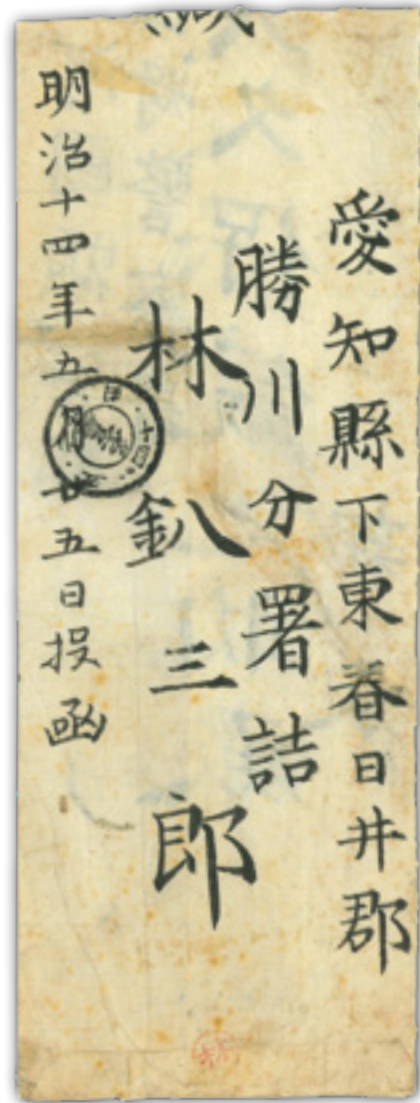 緘
愛知縣下東春日井郡
勝川分署詰
林釟三郎
明治十四年五月廿五日投函